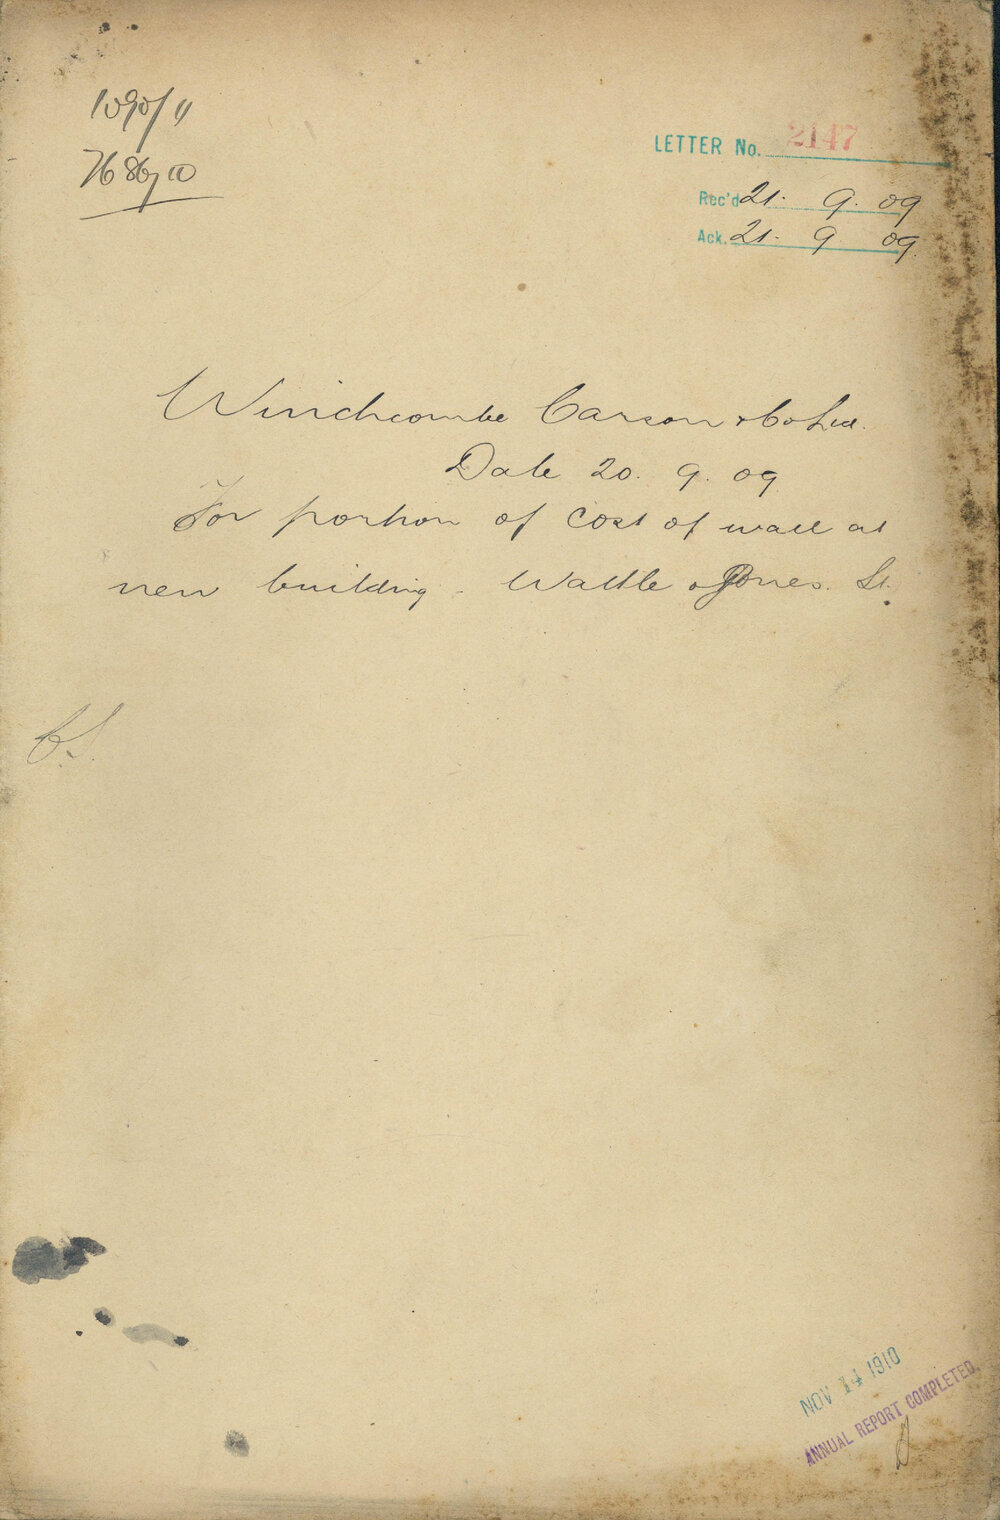 1090/11
7686/10
LETTER No. 2147
Rec'd 21. 9. 09
Ack. 21. 9 09.
Winchcombe Carson & Co Ltd.
Date 20. 9. 09
For portion of cost of wall at
new building. Wattle & Jones. St.
NOV 14 1910
ANNUAL REPORT COMPLETED.